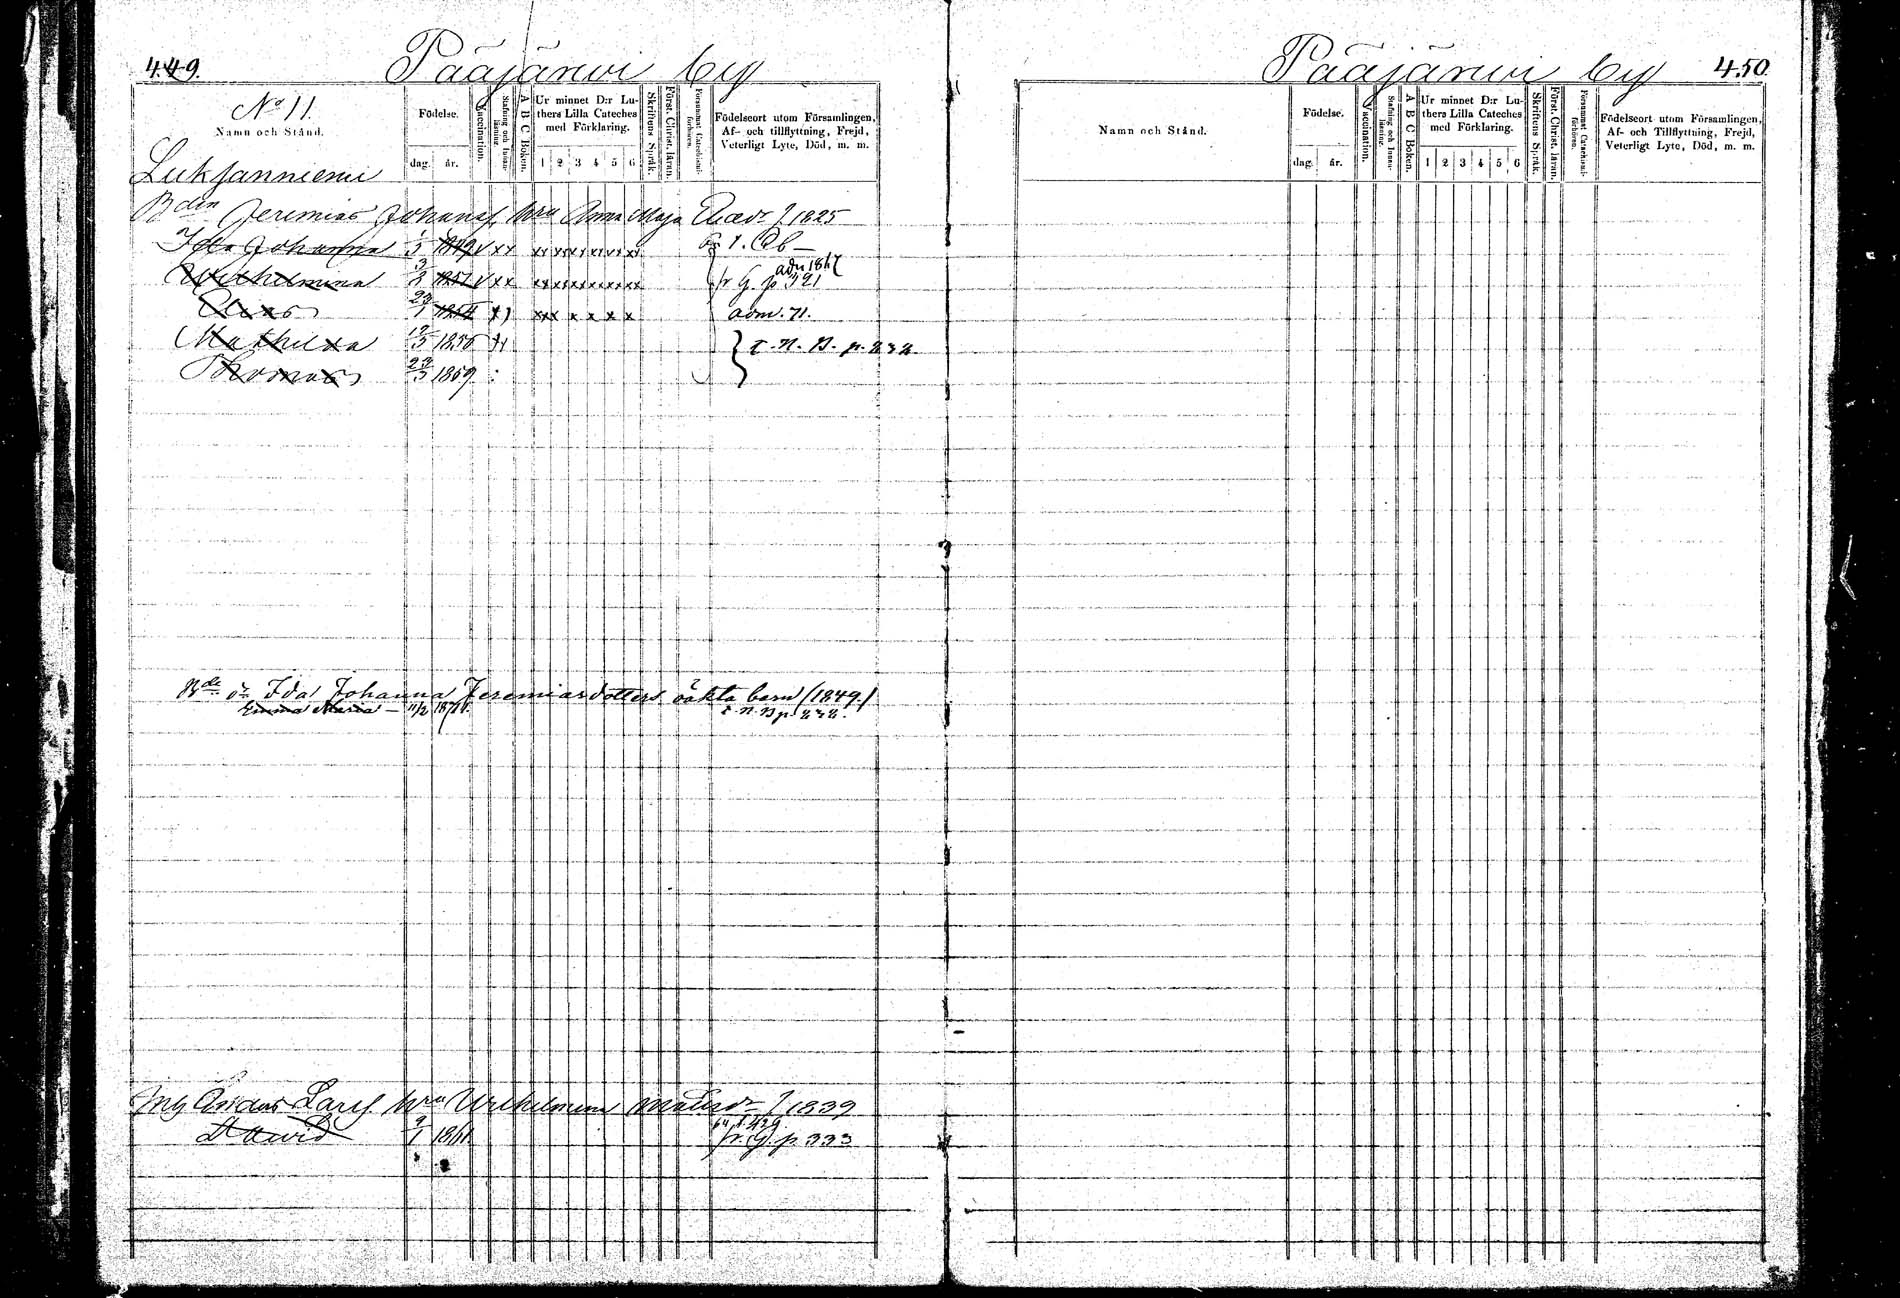 449.
Pääjärwi by
No 11.
Namn och Stånd.
Födelse.
dag. år.
Vaccination.
Stafning och Innanläsning.
A B C Boken.
Ur minnet D:r Luthers Lilla Cateches med Förklaring.
1 2 3 4 5 6
Skriftens Språk.
Först. Christ. läran.
Försummat Catechismiförhören.
Födelseort utom Församlingen, Af- och tillflyttning, Frejd, Veterligt Lyte, Död, m. m.
Lukjanniemi
Bden Jeremias Johansſ. hru Anna Maja 1825
Ida Johanna 1/5 1849 v xx xx xx xx xx xx xx
adm 1867
Wilhelmina 3/8 1851 v xx xx xx xx xx xx xx fr G. p 321
Elias 23/1 1854 xxx x x x x adm. 71.
Mathilda 12/5 1856 } t. N. B. p. 232.
Thomas 23/3 1859
Bde dr Ida Johanna Jeremiasdotters oäkta barn (1849.)
Emma Maria – 11/2 1871. t. N. B p 232.
Mg Anders Larsſ. hru Wilhelmina Matsdr f 1839
David 9/1 1861. fr G. p 333
Pääjärwi by
450.
Namn och Stånd.
Födelse.
dag. år.
Vaccination.
Stafning och Innanläsning.
A B C Boken.
Ur minnet D:r Luthers Lilla Cateches med Förklaring.
1 2 3 4 5 6
Skriftens Språk.
Först. Christ. läran.
Försummat Catechismiförhören.
Födelseort utom Församlingen, Af- och Tillflyttning, Frejd, Veterligt Lyte, Död, m. m.